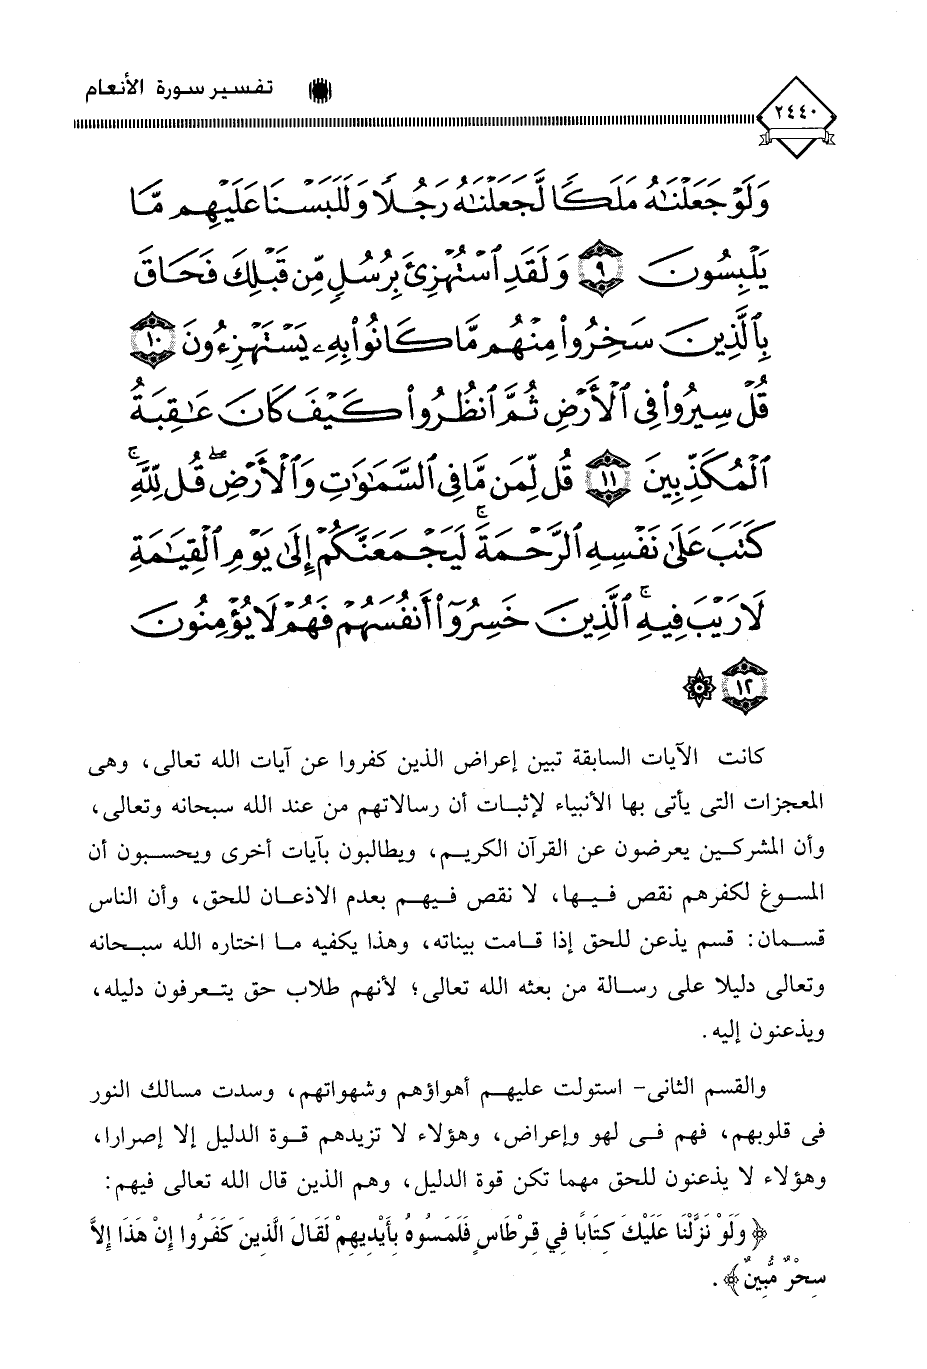 تفسير سورة الأنعام
٢٤٤٠
وَلَوْ جَعَلْنَٰهُ مَلَكًا لَّجَعَلْنَٰهُ رَجُلًا وَلَلَبَسْنَا عَلَيْهِم مَّا
يَلْبِسُونَ ٩ وَلَقَدِ ٱسْتُهْزِئَ بِرُسُلٍ مِّن قَبْلِكَ فَحَاقَ
بِٱلَّذِينَ سَخِرُوا۟ مِنْهُم مَّا كَانُوا۟ بِهِۦ يَسْتَهْزِءُونَ ١٠
قُلْ سِيرُوا۟ فِى ٱلْأَرْضِ ثُمَّ ٱنظُرُوا۟ كَيْفَ كَانَ عَٰقِبَةُ
ٱلْمُكَذِّبِينَ ١١ قُل لِّمَن مَّا فِى ٱلسَّمَٰوَٰتِ وَٱلْأَرْضِ ۖ قُل لِّلَّهِ ۚ
كَتَبَ عَلَىٰ نَفْسِهِ ٱلرَّحْمَةَ ۚ لَيَجْمَعَنَّكُمْ إِلَىٰ يَوْمِ ٱلْقِيَٰمَةِ
لَا رَيْبَ فِيهِ ۚ ٱلَّذِينَ خَسِرُوٓا۟ أَنفُسَهُمْ فَهُمْ لَا يُؤْمِنُونَ
١٢
كانت الآيات السابقة تبين إعراض الذين كفروا عن آيات الله تعالى، وهى
المعجزات التى يأتى بها الأنبياء لإثبات أن رسالاتهم من عند الله سبحانه وتعالى،
وأن المشركين يعرضون عن القرآن الكريم، ويطالبون بآيات أخرى ويحسبون أن
المسوغ لكفرهم نقص فيها، لا نقص فيهم بعدم الاذعان للحق، وأن الناس
قسمان: قسم يذعن للحق إذا قامت بيناته، وهذا يكفيه ما اختاره الله سبحانه
وتعالى دليلا على رسالة من بعثه الله تعالى؛ لأنهم طلاب حق يتعرفون دليله،
ويذعنون إليه.
والقسم الثانى- استولت عليهم أهواؤهم وشهواتهم، وسدت مسالك النور
فى قلوبهم، فهم فى لهو وإعراض، وهؤلاء لا تزيدهم قوة الدليل إلا إصرارا،
وهؤلاء لا يذعنون للحق مهما تكن قوة الدليل، وهم الذين قال الله تعالى فيهم:
﴿وَلَوْ نَزَّلْنَا عَلَيْكَ كِتَابًا فِي قِرْطَاسٍ فَلَمَسُوهُ بِأَيْدِيهِمْ لَقَالَ الَّذِينَ كَفَرُوا إِنْ هَذَا إِلاَّ
سِحْرٌ مُّبِينٌ﴾.